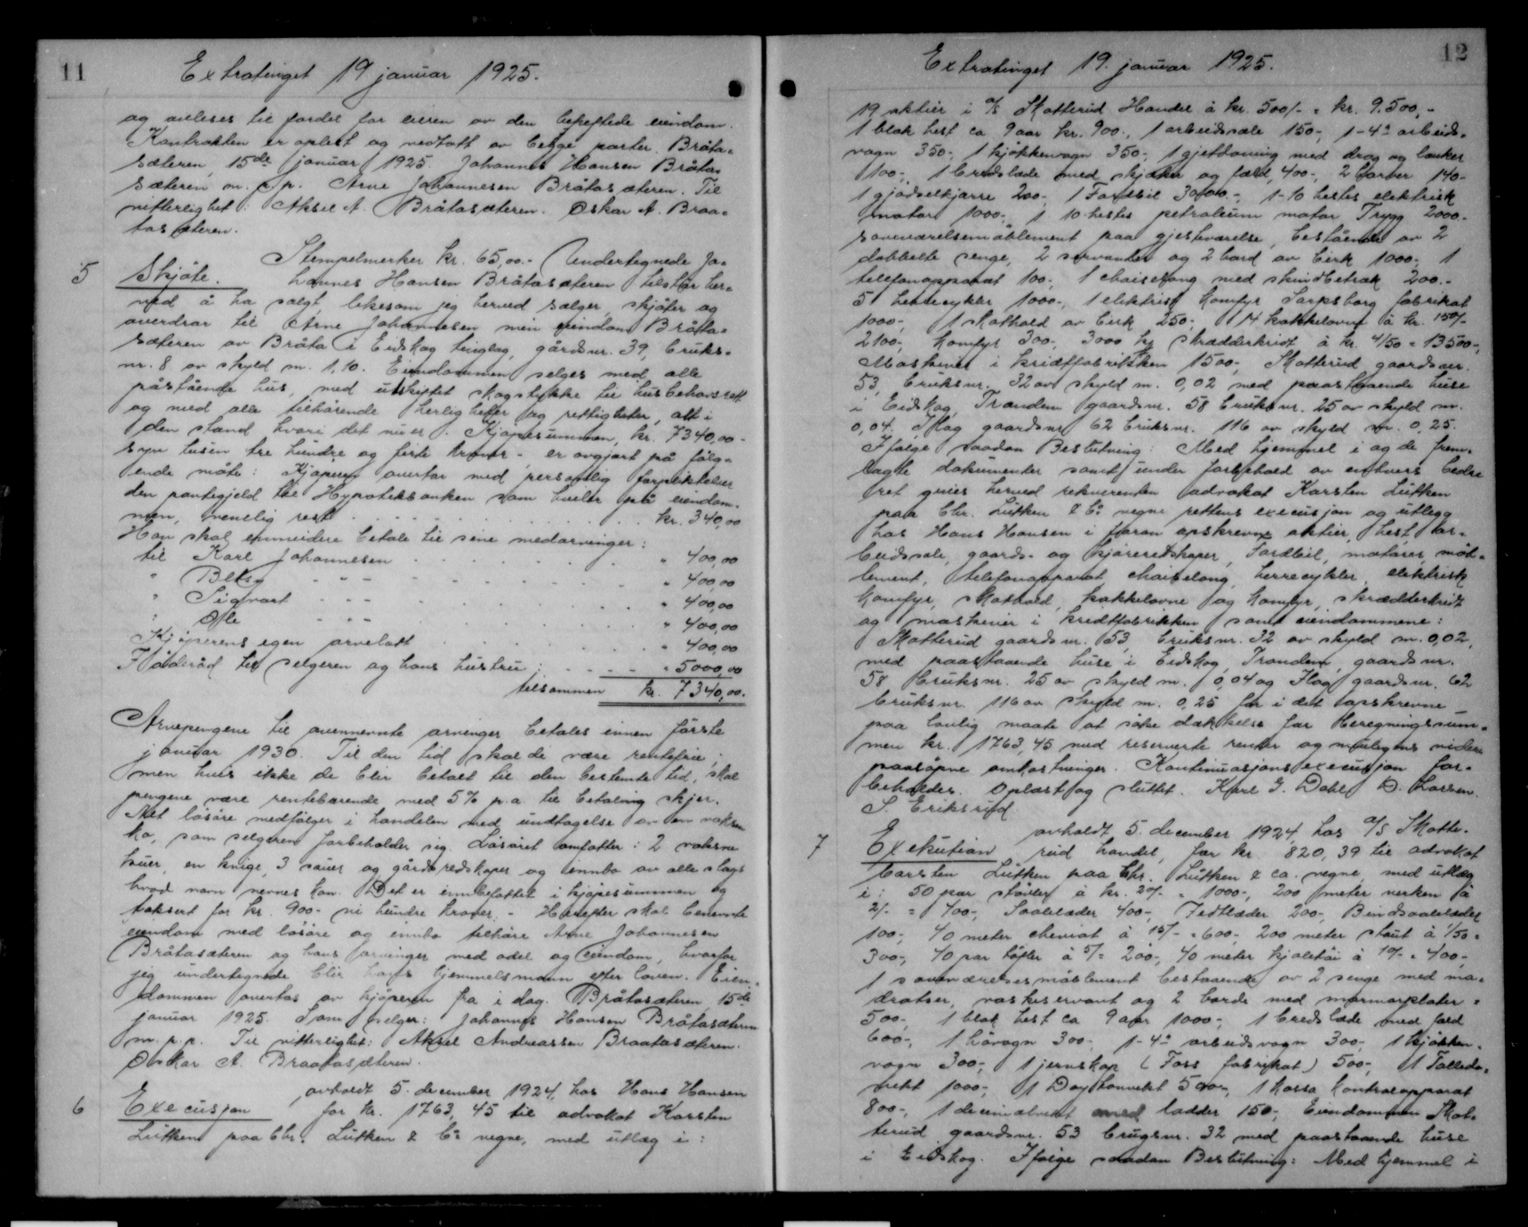 11
Extratinget 19 januar 1925.
og avleses til fordel for eieren av den beheftede eiendom.
Kontrakten er oplest og vedtatt av begge parter. Bråta-
sæteren, 15de januar 1925. Johannes Hansen Bråta-
sæteren m. p. Arne Johannesen Bråtasæteren. Til
vitterlighet: Aksel A. Bråtasæteren. Oskar A. Braa-
tasæteren.
Stempelmerker kr. 65,00.- Undertegnede Jo-
5 Skjöte. hannes Hansen Bråtasæteren tilstår her-
ved å ha solgt likesom jeg herved sælger, skjöter og
overdrar til Arne Johannesen min eiendom Bråta-
sæteren av Bråta i Eidskog tinglag, gårdsnr. 39, bruks-
nr. 8 av skyld m. 1,10. Eiendommen selges med alle
påstående hus, med utskiftet skogstykke til husbehovsrett
og med alle tilhörende herligheter og rettigheter, alt i
den stand hvori det nu er. Kjöpesummen, kr. 7340,00 -
syv tusen tre hundre og firti kroner - er avgjort på fölg-
ende måte: Kjöperen overtar med personlig forpliktelse
den pantegjeld til Hypotekbanken som hviler på eiendom-
men, nemlig rest . . . . . kr. 340,00
Han skal enmvidere betale til sine medarvinger:
til Karl Johannesen . . . . . " 400,00
" Betsy - - - . . . . . " 400,00
" Sigvart - - - . . . . . " 400,00
" Ole - - - . . . . . " 400,00
Kjöperens egen arvelott . . . . . " 400,00
Föderåd til selgeren og hans hustru: - - - - " 5000,00
tilsammen kr. 7340,00.
Arvepengene til ovennevnte arvinger betales innen förste
januar 1930. Til den tid skal de være rentefrie,
men hvis ikke de blir betalt til den bestemte tid, skal
pengene være rentebærende med 5% p.a. til betaling skjer.
Alt lösöre medfölger i handelen med undtagelse av en voksen
ko, som selgeren forbeholder sig. Lösöret omfatter: 2 voksne
kuer, en kvige, 3 sauer og gårdsredskaper og innbo av alle slags
hvad navn nevnes kan. Det er innbefattet i kjöpesummen og
taksert for kr. 900.- ni hundre kroner. - Herefter skal benevnte
eiendom med lösöre og innbo tilhöre Arne Johannesen
Bråtasæteren og hans arvinger med odel og eiendom, hvorfor
jeg undertegnede blir hans hjemmelsmann efter loven. Eien-
dommen overtas av kjöperen fra i dag. Bråtasæteren 15de
januar 1925. Som selger: Johannes Hansen Bråtasæteren
m. p. p. Til vitterlighet: Aksel Andreassen Braatasæteren.
Oskar A. Braatasæteren.
avholdt 5. december 1924, hos Hans Hansen
6 Execusjon for kr. 1763,45 til advokat Karsten
Lütken paa Chr. Lütken & Co vegne, med utlæg i:
12
Extratinget 19. januar 1925.
19 aktier i A/S Skotterud Handel à kr. 500/- = kr. 9.500,-
1 blak hest ca 9 aar kr. 900.-, 1 arbeidssæle 150,-, 1-4" arbeids-
vogn 350.- 1 kjökkenvogn 350,- 1 gjetdoning med drag og lænker
100,-, 1 bredslæde med skjæker og fæld, 400,-, 2 harver 140-
1 gjödselkjærre 200,-, 1 Fordbil 3000-, 1-10 hestes elektrisk
motor 1000,-, 1 10 hestes petroleum motor Trygg 2000-
soveværelsemöblement paa gjesteværelse, bestående av 2
dobbelte senge, 2 servanter og 2 bord av birk 1000.- 1
telefonapparat 100,- 1 chaiselong med skindbetræk 200.-
5 herrecykler, 1000.-, 1 elektrisk komfyr Sarpsborg fabrikat
1000,- 1 skathold av birk 250.- 14 kakkelovne à kr. 150/-
2100,-, komfyr 300,- 3000 kg skrædderkrit à kr. 4/50 = 13500,-,
Maskiner i kridtfabrikken 1500,- Skotterud gaardsnr.
53, bruksnr. 32 av skyld m. 0,02 med paastaaende huse
i Eidskog, Tranden gaardsnr. 58 bruksnr. 25 av skyld m.
0,04. Flog gaardsnr 62 bruksnr. 116 av skyld m. 0,25.
Ifölge saadan Beslutning: Med hjemmel i og de frem-
lagte dokumenter samt under forbehold av enhvers bedre
ret gives herved rekvirenten advokat Karsten Lütken
paa Chr. Lütken & Co vegne rettens execusjon og utlegg
hos Hans Hansen i foran opskrevne aktier, hest, ar-
beidssæle, gaards- og kjöreredskaper, Fordbil, motorer, möb-
lement, telefonapparat chaiselong, herrecykler, elektrisk
komfyr, skathold, kakkelovne og komfyr, skrædderkrit
og maskiner i kridtfabrikken samt eiendommene:
Skotterud gaardsnr. 53, bruksnr. 32 av skyld m. 0,02,
med paastaaende huse i Eidskog, Tranden, gaardsnr.
58 bruksnr. 25 av skyld m. 0,04 og Flog gaardsnr. 62
bruksnr. 116 av skyld m. 0,25 for i det opskrevne
paa lovlig maate at söke dækkelse for beregningssum-
men kr. 1763,45 med reserverte renter og muligens videre
paaløpne omkostninger. Kontinuasjonsexecusjon for-
beholdes. Oplæst og sluttet. Karl G. Dahl D. Larsen.
S. Eriksrud.
avholdt 5. december 1924, hos A/S Skotte-
7 Exekution rud handel, for kr. 820,39 til advokat
Carsten Lütken paa Chr. Lütken & co. vegne, med utlæg
i: 50 par stövler à kr. 20/- = 1000-, 200 meter verken à
2/- = 400,- Saalelæder 400,-, Fedtlæder 200,- Bindsaalelæder
100,-, 40 meter cheviot à 15/- = 600,- 200 meter stout à 1/50 =
300,-, 40 par töfler à 5/- 200,-, 40 meter kjoletöi à 10/- = 400,-
1 soveværelsesmöblement bestaaende av 2 senge med ma-
dratser, vaskeservant og 2 borde med marmorplater =
500,- 1 blak hest ca 9 aar 1000-, 1 bredslæde med fæld
600,-, 1 hövogn 300,- 1-4" arbeidsvogn 300,- 1 kjökken-
vogn 300,- 1 jernskap (Foss fabrikat) 500,- 1 Tolledo-
vekt 1000,-, 1 Daytonvekt 500,-, 1 kassa kontrolapparat
800-, 1 decimalvekt med lodder 150,- Eiendommen Skot-
terud gaardsnr. 53 brugsnr. 32 med paastaaende huse
i Eidskog. Ifölge saadan Beslutning: Med hjemmel i